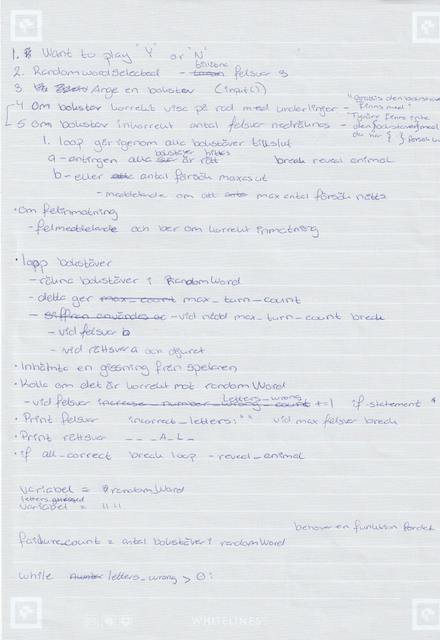 1. Want to play "Y" or "N"
2. Randomwordselected - bokstäver felsvar 3
3 Ange en bokstav (input())
4 Om bokstav korrekt visa på rad med underlinjer - "Grattis den bokstaven finns med"
5 Om bokstav inkorrekt antal felsvar nedräknas - Tyvärr finns inte den bokstaven med du har { } försök
1. loop går igenom alla bokstäver tillslut
a - antingen alla bokstäver hittas är rätt break reveal animal
b - eller antal försök maxas ut
- meddelande om att max antal försök nåtts
• Om felinmatning
- felmeddelande och ber om korrekt inmatning
• loop bokstäver
- räkna bokstäver i RandomWord
- detta ger max_count max_turn_count
- siffran användes av - vid nådd max_turn_count break
- vid felsvar b
- vid rättsvar a och djuret
• Inhämta en gissning från spelaren
• Kolla om det är korrekt mot randomWord
- vid felsvar increase_number_wrong_count letters_wrong +=1 if statement *
• Print felsvar incorrect_letters: "" vid max felsvar break
• Print rättsvar _ _ _ A _ L _
• if all_correct break loop - reveal_animal
variabel = randomWord
letters_guessed
variabel = "..."
behöver en funktion
failure_count = antal bokstäver i randomWord
while letters_wrong > 0:
WHITELINES